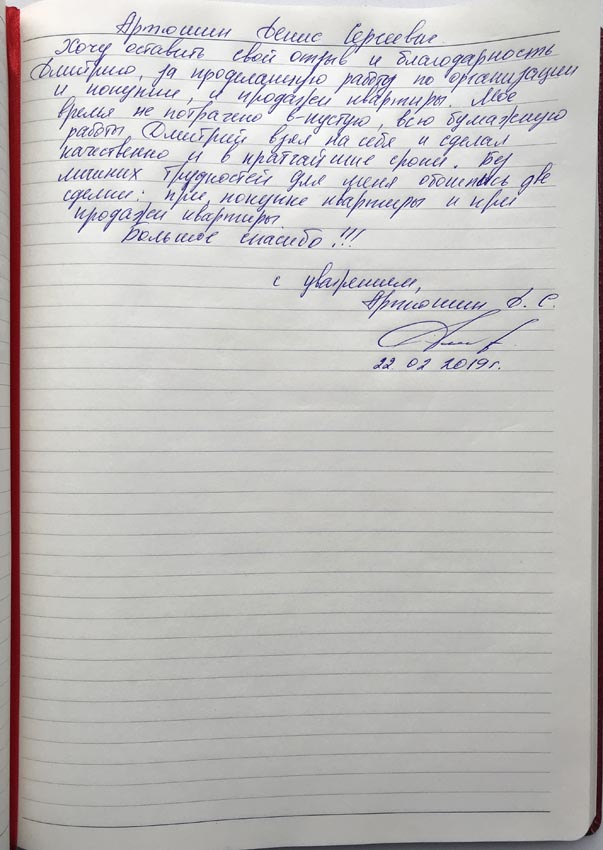 Артюшин Денис Сергеевич
Хочу оставить свой отзыв и благодарность
Дмитрию, за проделанную работу по организации
и покупки, и продажи квартиры. Мое
время не потрачено в-пустую, всю бумажную
работы Дмитрий взял на себя и сделал
качественно и в кратчайшие сроки. Без
лишних трудностей для меня обошлись две
сделки: при покупке квартиры и при
продажи квартиры
Большое спасибо!!!
с уважением,
Артюшин Д. С.
22 02 2019г.